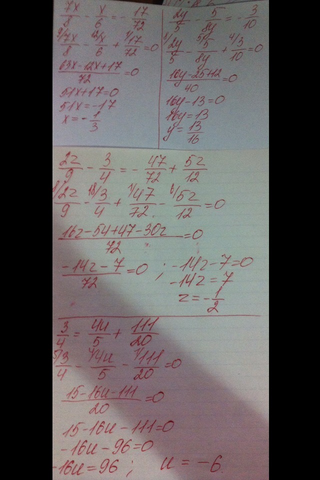 7x/8 - x/6 = -17/72
9/7x/8 - 12/x/6 + 1/17/72 = 0
63x-12x+17/72 = 0
51x+17=0
51x=-17
x=-1/3
2y/5 - 5/8y = -3/10
2y/5 - 5/8y + 4/3/10 = 0
16y-25+12/40 = 0
16y-13=0
16y=13
y=13/16
2z/9 - 3/4 = -47/72 + 5z/12
8/2z/9 - 18/3/4 + 1/47/72 - 6/5z/12 = 0
16z-54+47-30z/72 = 0
-14z-7/72 = 0 ; -14z-7=0
-14z=7
z=-1/2
3/4 = 4u/5 + 111/20
5/3/4 - 4/4u/5 - 1/111/20 = 0
15-16u-111/20 = 0
15-16u-111=0
-16u-96=0
-16u=96 ; u=-6